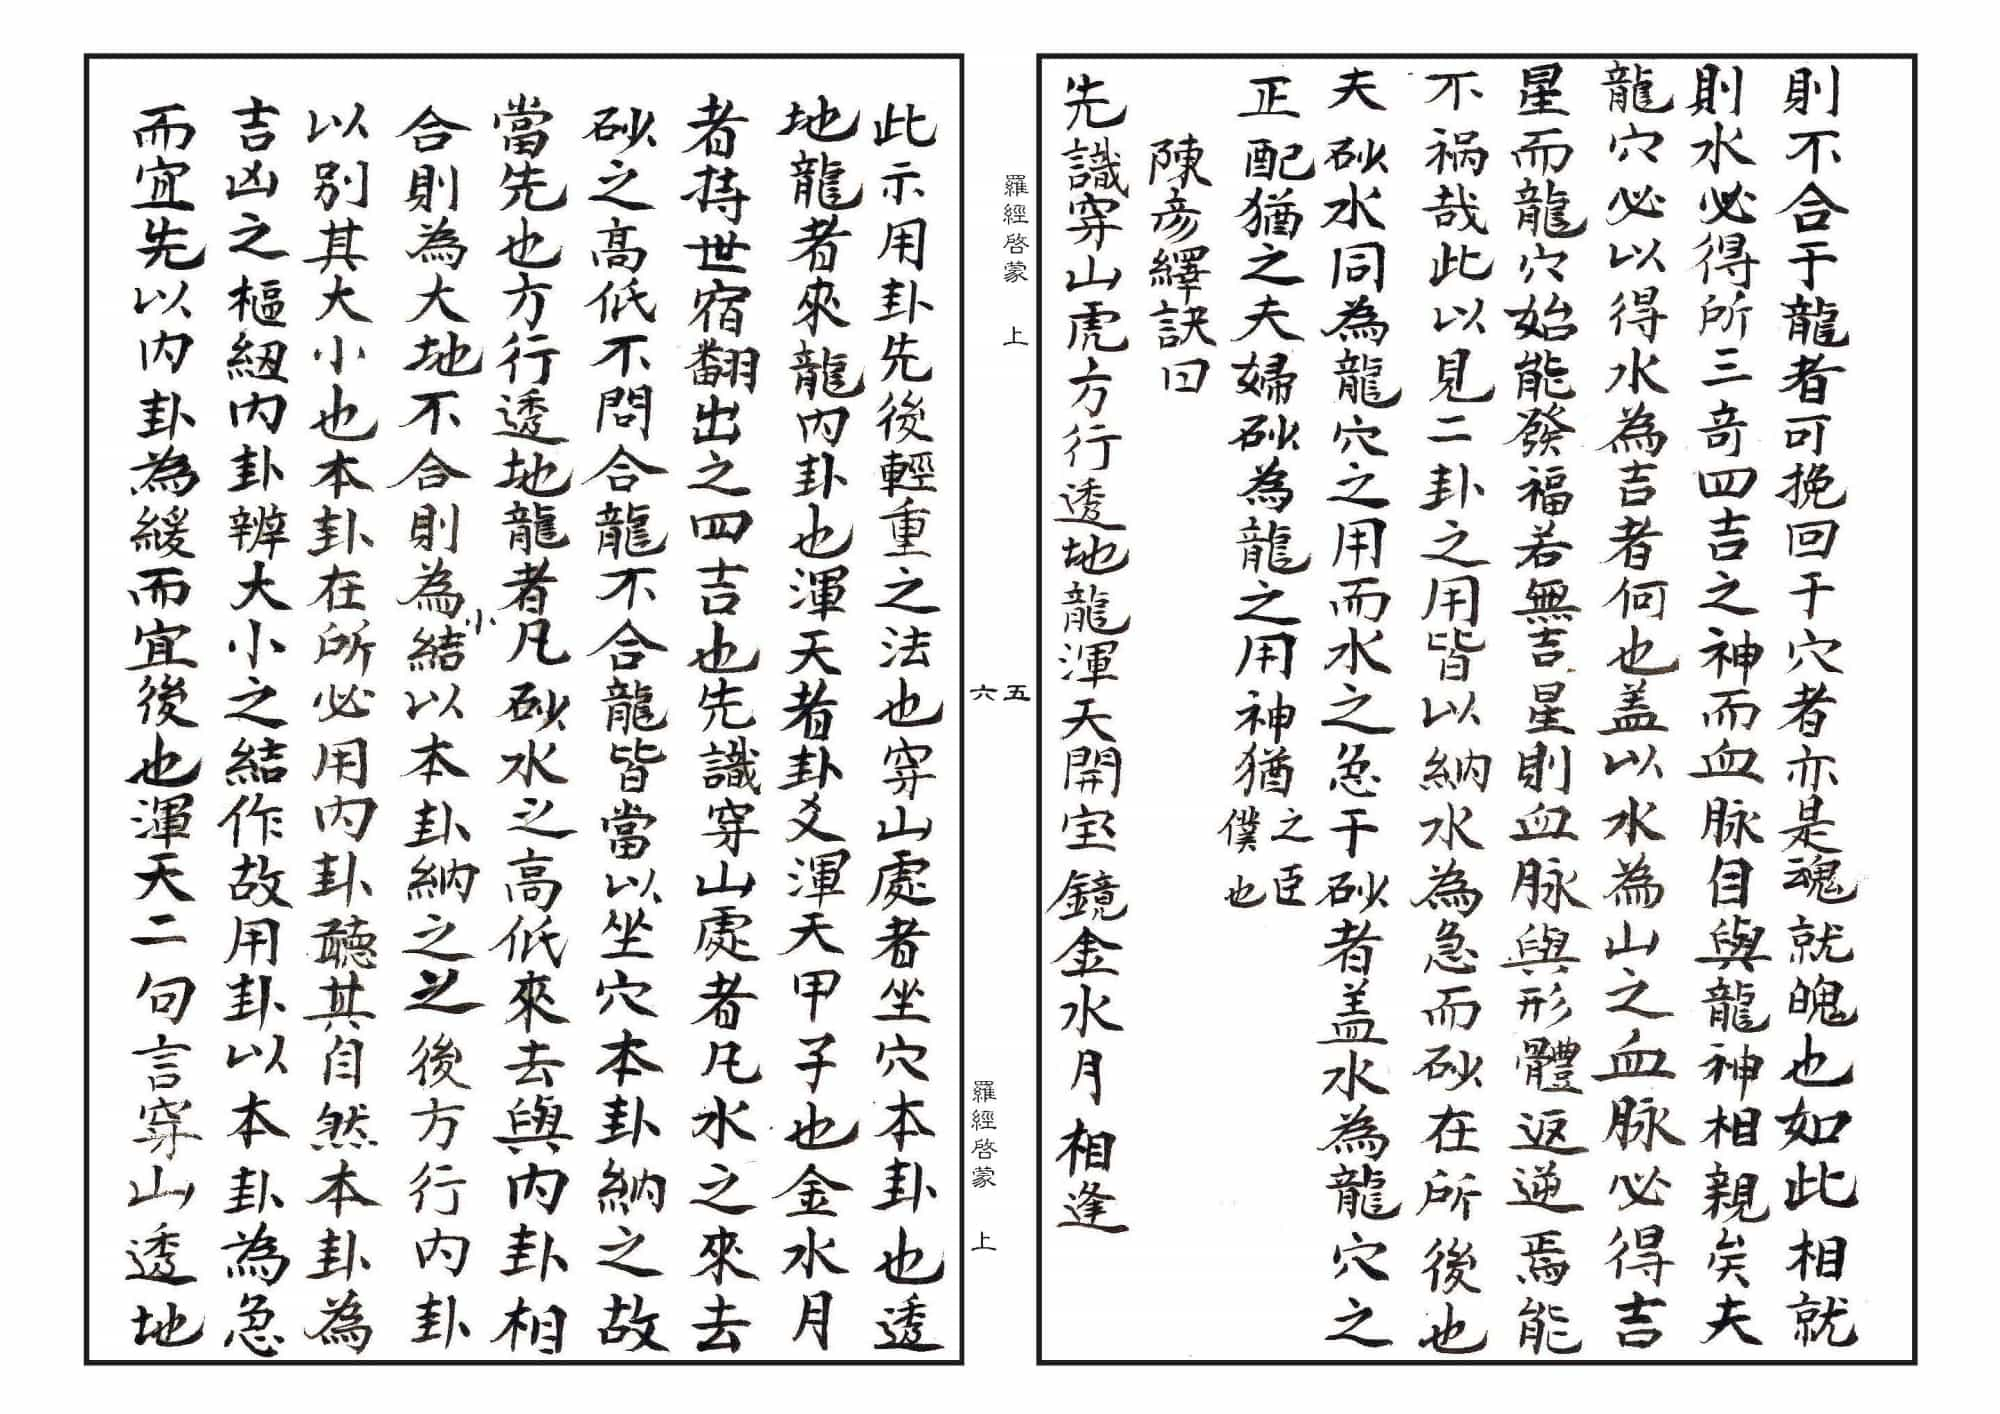 則不合于龍者可挽回于穴者亦是魂就魄也如此相就
則水必得所三奇四吉之神而血脉自與龍神相親矣夫
龍穴必以得水為吉者何也盖以水為山之血脉必得吉
星而龍穴始能發福若無吉星則血脉與形體返逆焉能
不禍哉此以見二卦之用皆以納水為急而砂在所後也
夫砂水同為龍穴之用而水之急于砂者盖水為龍穴之
正配猶之夫婦砂為龍之用神猶之臣僕也
陳彦繹訣曰
先識穿山虎方行透地龍渾天開宝鏡金水月相逢
羅經啓蒙 上
五
六
羅經啓蒙 上
此示用卦先後輕重之法也穿山處者坐穴本卦也透
地龍者來龍内卦也渾天者卦爻渾天甲子也金水月
者持世宿翻出之四吉也先識穿山處者凡水之來去
砂之高低不問合龍不合龍皆當以坐穴本卦納之故
當先也方行透地龍者凡砂水之高低來去與内卦相
合則為大地不合則為小結以本卦納之之後方行内卦
以別其大小也本卦在所必用内卦聽其自然本卦為
吉凶之樞紐内卦辨大小之結作故用卦以本卦為急
而宜先以内卦為緩而宜後也渾天二句言穿山透地